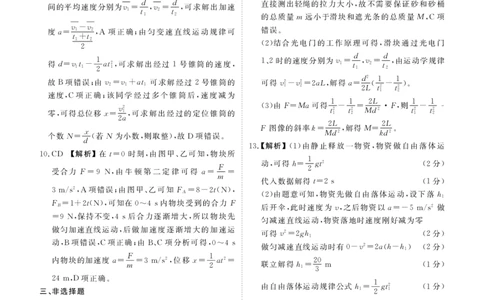 间的平均速度分别为 v₁ = d/t₁, v₂ = d/t₂, 可求解出加速
度 a = (v₂ − v₁)/((t₁ + t₂)/2), A 项正确; 由匀变速直线运动规律可
得 d = v₁t₁ − 1/2 at₁², 可求解出经过 1 号锥筒的速度,
故 B 项错误; 由 v₂ = v₁ + at₁ 可求解经过 2 号锥筒的
速度, C 项正确; 该同学经过多个锥筒后, 速度减为
零, 可得总位移 x = v₀²/2a, 可求解出经过的定位锥筒的
个数 N = x/d (若 N 为小数, 则取整), 故 D 项错误。
10. CD 【解析】在 t=0 时刻, 由图甲、乙可知, 物块所
受合力 F=9 N, 由牛顿第二定律可得 a = F/m =
3 m/s², A 项错误; 由图甲、乙可知 F_A=8−2t(N),
F_B=1+2t(N), 可知在 0~4 s 内物块受到的合力 F
=9 N, 保持不变, 4 s 后合力逐渐增大, 所以物块先
做匀加速直线运动, 后做加速度逐渐增大的加速运
动, B 项错误, C 项正确; 由 B、C 项分析可得, 0~4 s
内物块的加速度 a = F/m = 3 m/s², 位移 x = 1/2 at² =
24 m, D 项正确。
三、非选择题
直接测出轻绳的拉力大小, 故不需要保证砂和砂桶
的总质量 m 远小于滑块和遮光条的总质量 M, C 项
错误。
(2)结合光电门的工作原理可得, 滑块通过光电门
1、2 时的速度分别为 v₁ = d/t₁, v₂ = d/t₂, 由运动学规律
可得 v₂² − v₁² = 2aL, 解得 a = d²/2L (1/t₂² − 1/t₁²)。
(3)由 F=Ma 可得 1/t₂² − 1/t₁² = 2L/Md² · F, 则 1/t₂² − 1/t₁² -
F 图像的斜率 k = 2L/Md², 解得 M = 2L/kd²。
13.【解析】(1)由静止释放一物资, 物资做自由落体运
动, 可得 h = 1/2 gt² (2 分)
代入数据解得 t=2 s (1 分)
(2)由题意可知, 物资先做自由落体运动, 设下落 h₁
后开伞, 此时速度为 v, 之后物资以 a=−5 m/s² 做
匀减速直线运动, 物资落地时速度刚好减为零
可得 v²=2gh₁ (2 分)
做匀减速直线运动时有 0−v²=2a(h−h₁) (2 分)
联立解得 h₁ = 20/3 m (1 分)
由自由落体运动规律公式 h₁ = 1/2 gt₁² (1 分)